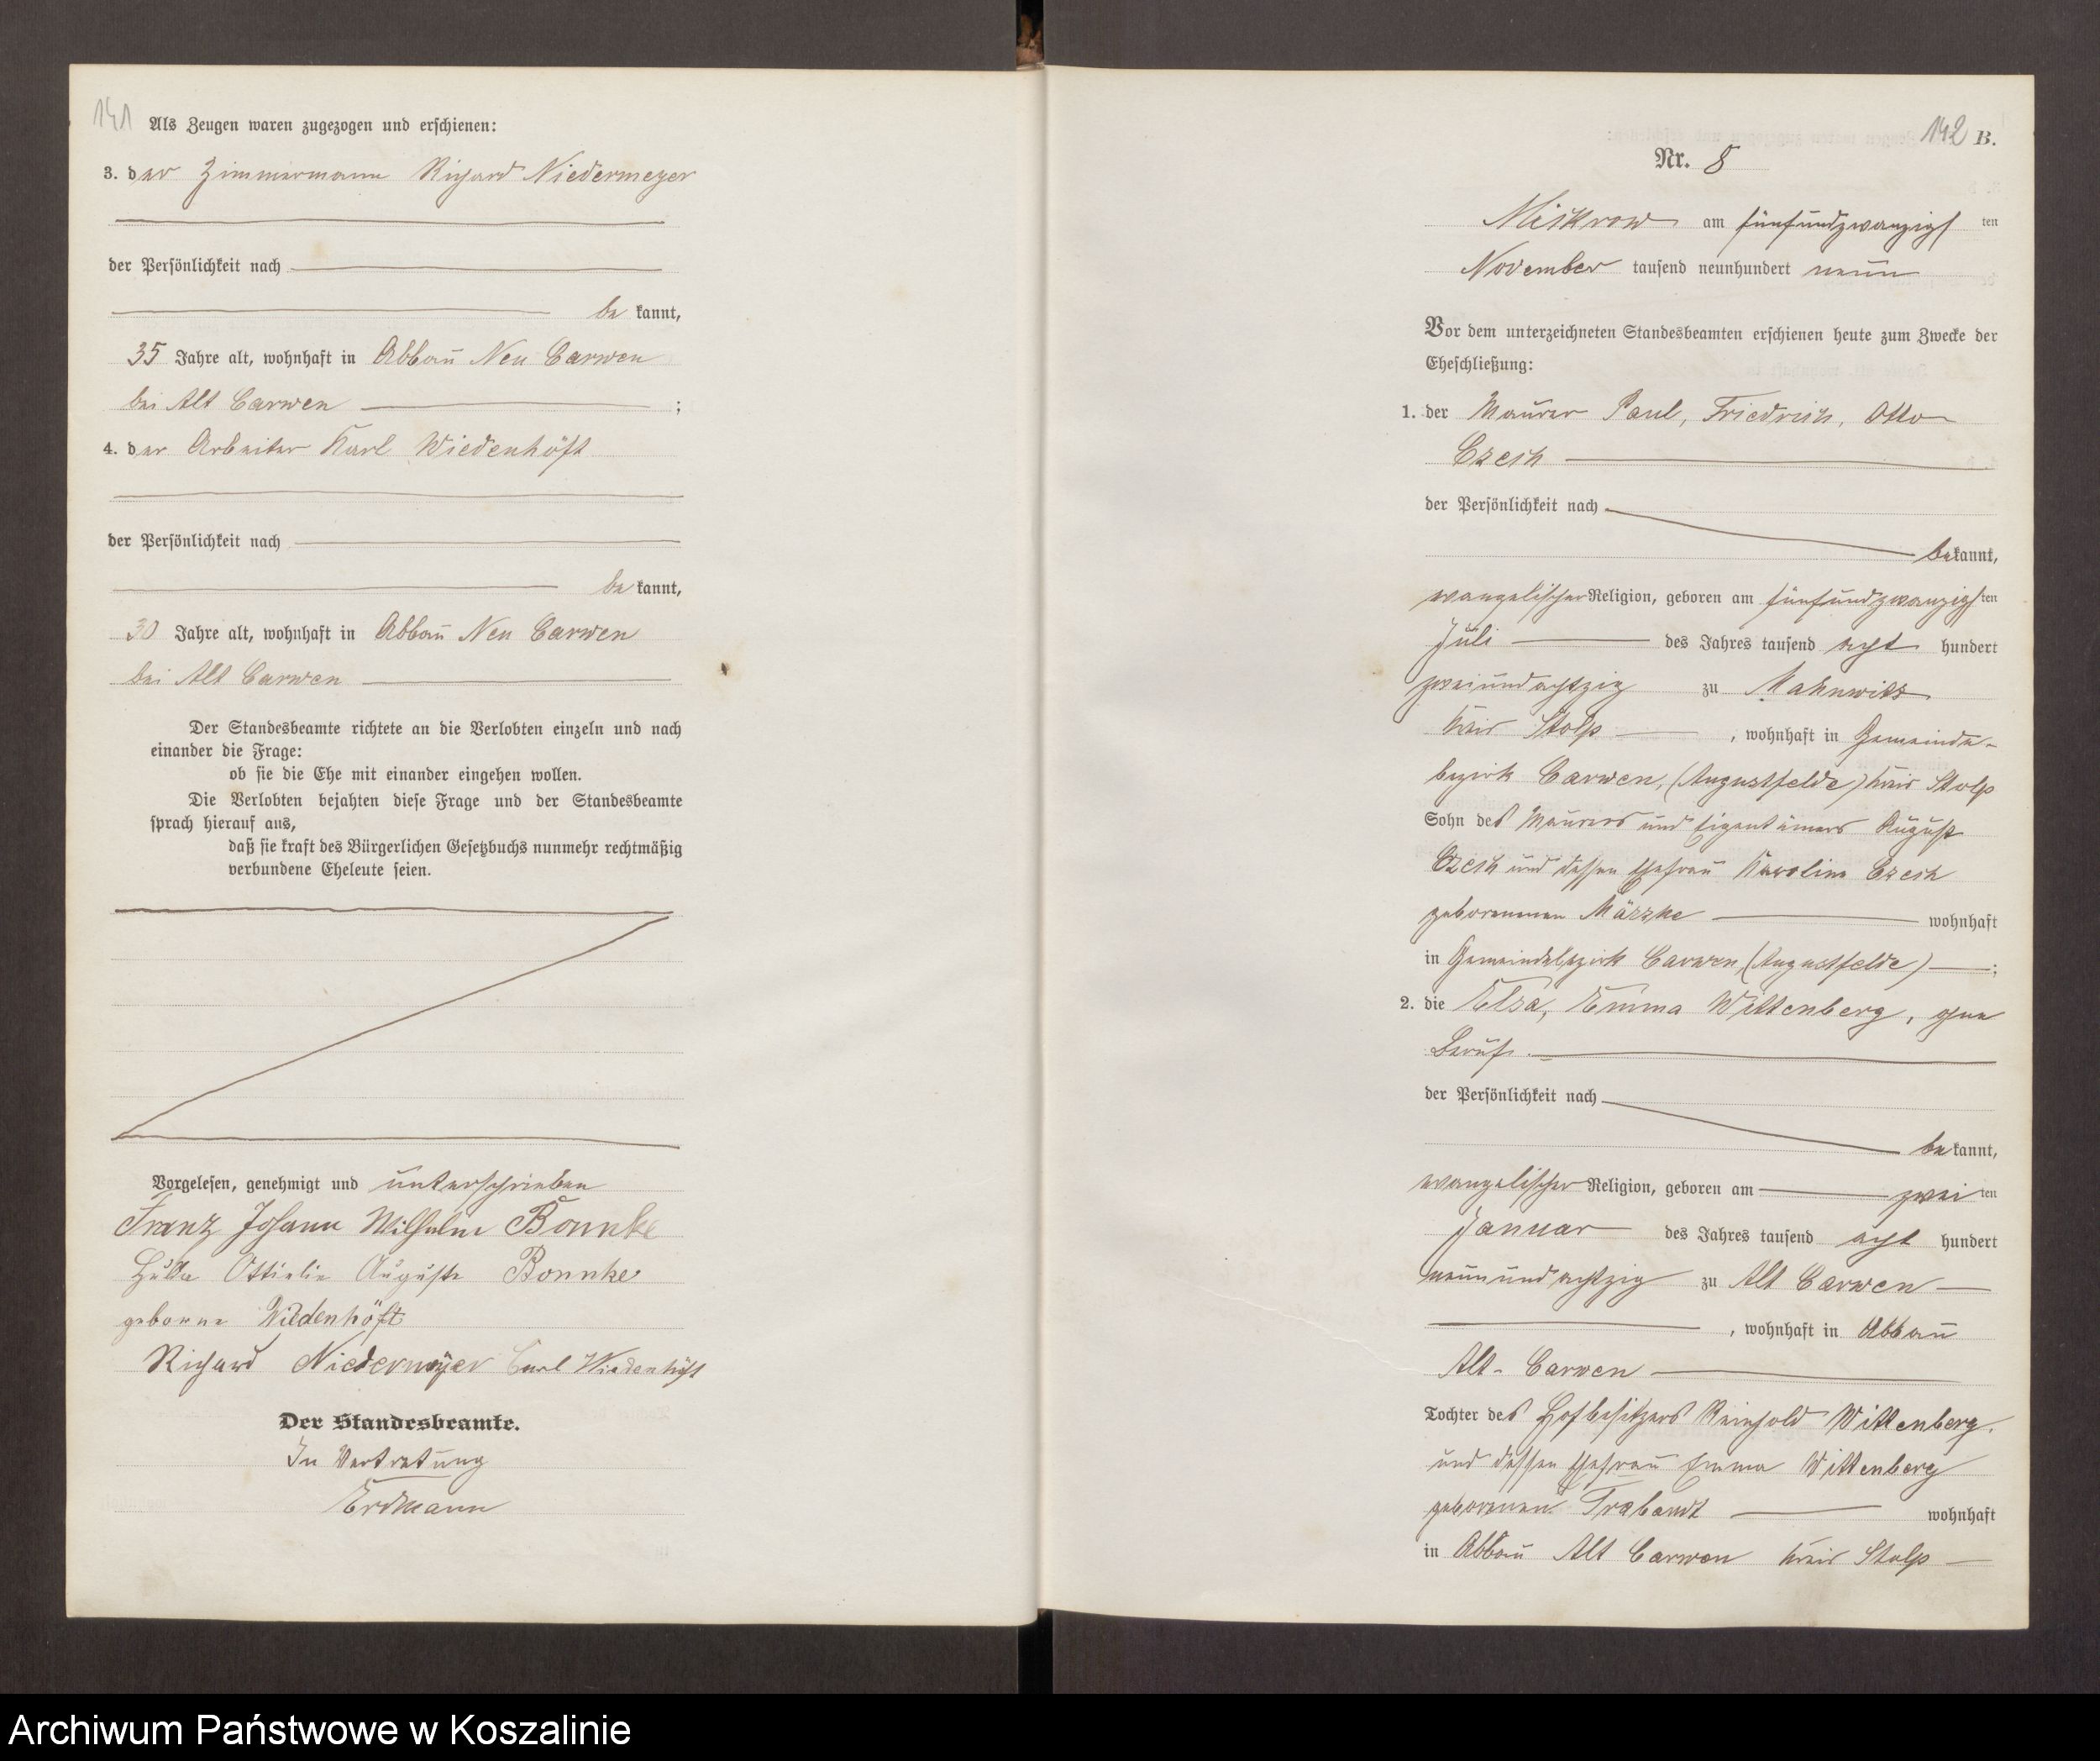 141
Als Zeugen waren zugezogen und erschienen:
3. der Zimmermann Richard Niedermeyer
der Persönlichkeit nach
be kannt,
35 Jahre alt, wohnhaft in Abbau Neu Carwen
bei Alt Carwen ;
4. der Arbeiter Karl Wiedenhöft
der Persönlichkeit nach
be kannt,
30 Jahre alt, wohnhaft in Abbau Neu Carwen
bei Alt Carwen
Der Standesbeamte richtete an die Verlobten einzeln und nach
einander die Frage:
ob sie die Ehe mit einander eingehen wollen.
Die Verlobten bejahten diese Frage und der Standesbeamte
sprach hierauf aus,
daß sie kraft des Bürgerlichen Gesetzbuchs nunmehr rechtmäßig
verbundene Eheleute seien.
Vorgelesen, genehmigt und unterschrieben
Franz Johann Wilhelm Bonnke
Ottielie Auguste Bonnke
geborne Widenhöft
Richard Niedermeyer Carl Wiedenhöft
Der Standesbeamte.
In Vertretung
Erdmann
142 B.
Nr. 8
Mickrow am fünfundzwanzigs ten
November tausend neunhundert neun
Vor dem unterzeichneten Standesbeamten erschienen heute zum Zwecke der
Eheschließung:
1. der Maurer Paul, Friedrich, Otto
Czech
der Persönlichkeit nach
bekannt,
evangelischer Religion, geboren am fünfundzwanzigs ten
Juli des Jahres tausend acht hundert
zweiundachtzig zu Mahnwitz
Kreis Stolp , wohnhaft in Gemeinde-
bezirk Carwen, (Augustfelde) Kreis Stolp
Sohn des Maurers und Eigentümers August
Czech und dessen Ehefrau Karoline Czech
geborenenen Märzke wohnhaft
in Gemeindebezirk Carwen, (Augustfelde) ;
2. die Elsa, Emma Wittenberg, ohne
Beruf.
der Persönlichkeit nach
bekannt,
evangelischer Religion, geboren am zwei ten
Januar des Jahres tausend acht hundert
neunundachtzig zu Alt Carwen
, wohnhaft in Abbau
Alt-Carwen
Tochter des Hofbesitzers Reinhold Wittenberg,
und dessen Ehefrau Emma Wittenberg
geborenen Trabandt wohnhaft
in Abbau Alt Carwen Kreis Stolp
Archiwum Państwowe w Koszalinie